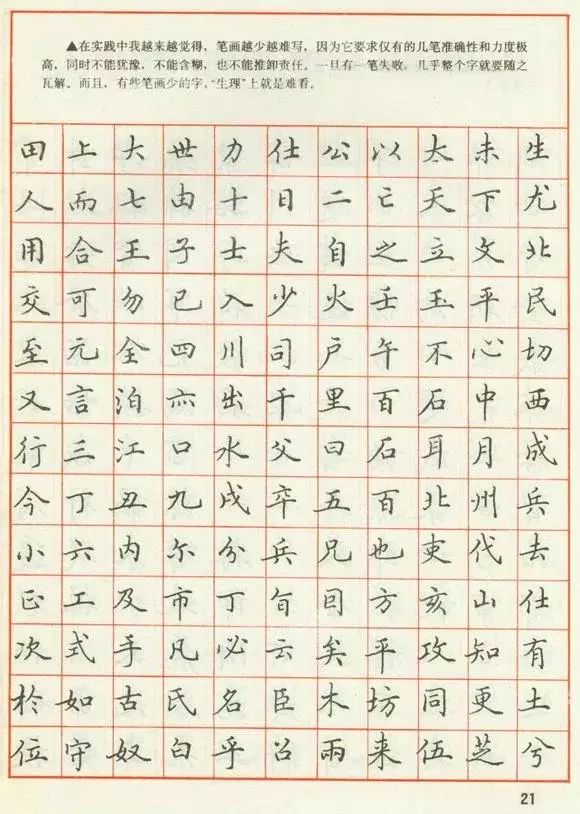 ▲在实践中我越来越觉得，笔画越少越难写，因为它要求仅有的几笔准确性和力度极
高，同时不能犹豫，不能含糊，也不能推卸责任。一旦有一笔失败，几乎整个字就要随之
瓦解。而且，有些笔画少的字，“生理”上就是难看。
田上大世力仕公以太未生
人而七由十日二亡天下尤
用合王子士夫自之立文北
交可勿已入少火壬玉平民
至元全四川司户午不心切
又言泊亦出千里百石中西
行三江口水父曰石耳月成
今丁丑九戌卒五百北州兵
小六内尔分兵兄也吏代去
正工及市丁旬囘方亥山仕
次式手凡必云矣平攻知有
於如古氏名臣木坊同更土
位守奴白乎召兩来伍芝兮
21